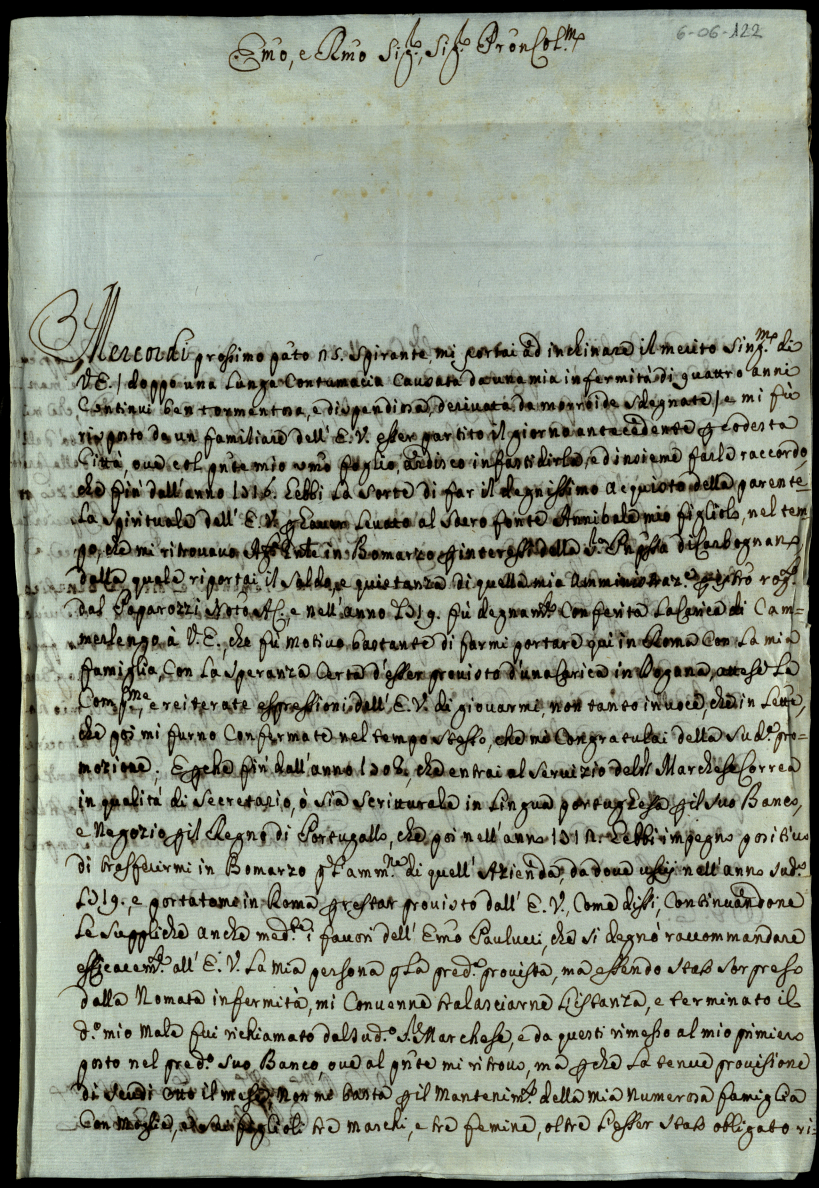 6-06-122
Emo, e Rmo Sig.r, Sig.r Pron Col.mo
Mercordi prossimo pato 15. spirante, mi portai ad inchinare il merito Sing.mo di
V.E. / doppo una lunga Contumacia Causata da una mia infermità di quattro anni
Continui ben tormentosa, e dispendiosa, derivata da morroide sdegnate / e mi fù
risposto da un familiare dell' E.V. esser partito il giorno antecedente p codesta
Città, ove col pnte mio umo foglio, ardisco infastidirla, ed insieme farle raccordo,
che fin' dall' anno 1716. hebbi la sorte di far il degnissimo acquisto della parente-
la spirituale dall' E.V. p haver levato al Sacro fonte Annibale mio figliolo, nel tem-
po, che mi ritrovavo in Bomarzo p interessi della di Carbognano,
dalla quale riportai il saldo, e quietanza di quella mia Amministraz.e rog.
dal Paparozzi Noto AC, e nell' anno 1719. fù degnam.te Conferita la Carica di Cam=
merlengo à V.E. che fù motivo bastante di farmi portare qui in Roma Con la mia
famiglia, Con la speranza Certa d'esser provisto d'una Carica in Dogana, attese le
e reiterate espressioni dall' E.V. di giovarmi, non tanto in voce, che in lettre,
che poi mi furno Confermate nel tempo stesso, che me Congratulai della Sud.a pro=
mozione; E pche fin' dall' anno che entrai al Servizio del S. Marchese Correa
in qualità di Secretario, ò sia Scritturale in lingua portughesa p il suo Banco,
e Negozio p il Regno di Portugallo, che poi nell' anno hebbi impegno positivo
di trasferirmi in Bomarzo p l'amm.ne di quell' Azienda, da dove uscij nell' anno sud.o
1719., e portatome in Roma p restar provisto dall' E.V., Come dissi, Continuandone
le suppliche anche med.te i favori dell' Emo Paulucci, che si degnò raccommandare
efficacem.te all' E.V. la mia persona p la pred.a provista, ma essendo stato sorpreso
dalla Nomata infermità, mi Convenne tralasciarne l'istanza, e terminato il
d.o mio male fui richiamato dal sud.o S.r Marchese, e da questi rimesso al mio primiero
posto nel pred.o suo Banco, ove al pnte mi ritrovo, ma pche la tenue provisione
di scudi otto il mese, non me basta p il Mantenim.to della mia numerosa famiglia
Con Moglie, figlioli tre maschi, e tre femine, oltre l'esser stato obligato ri=